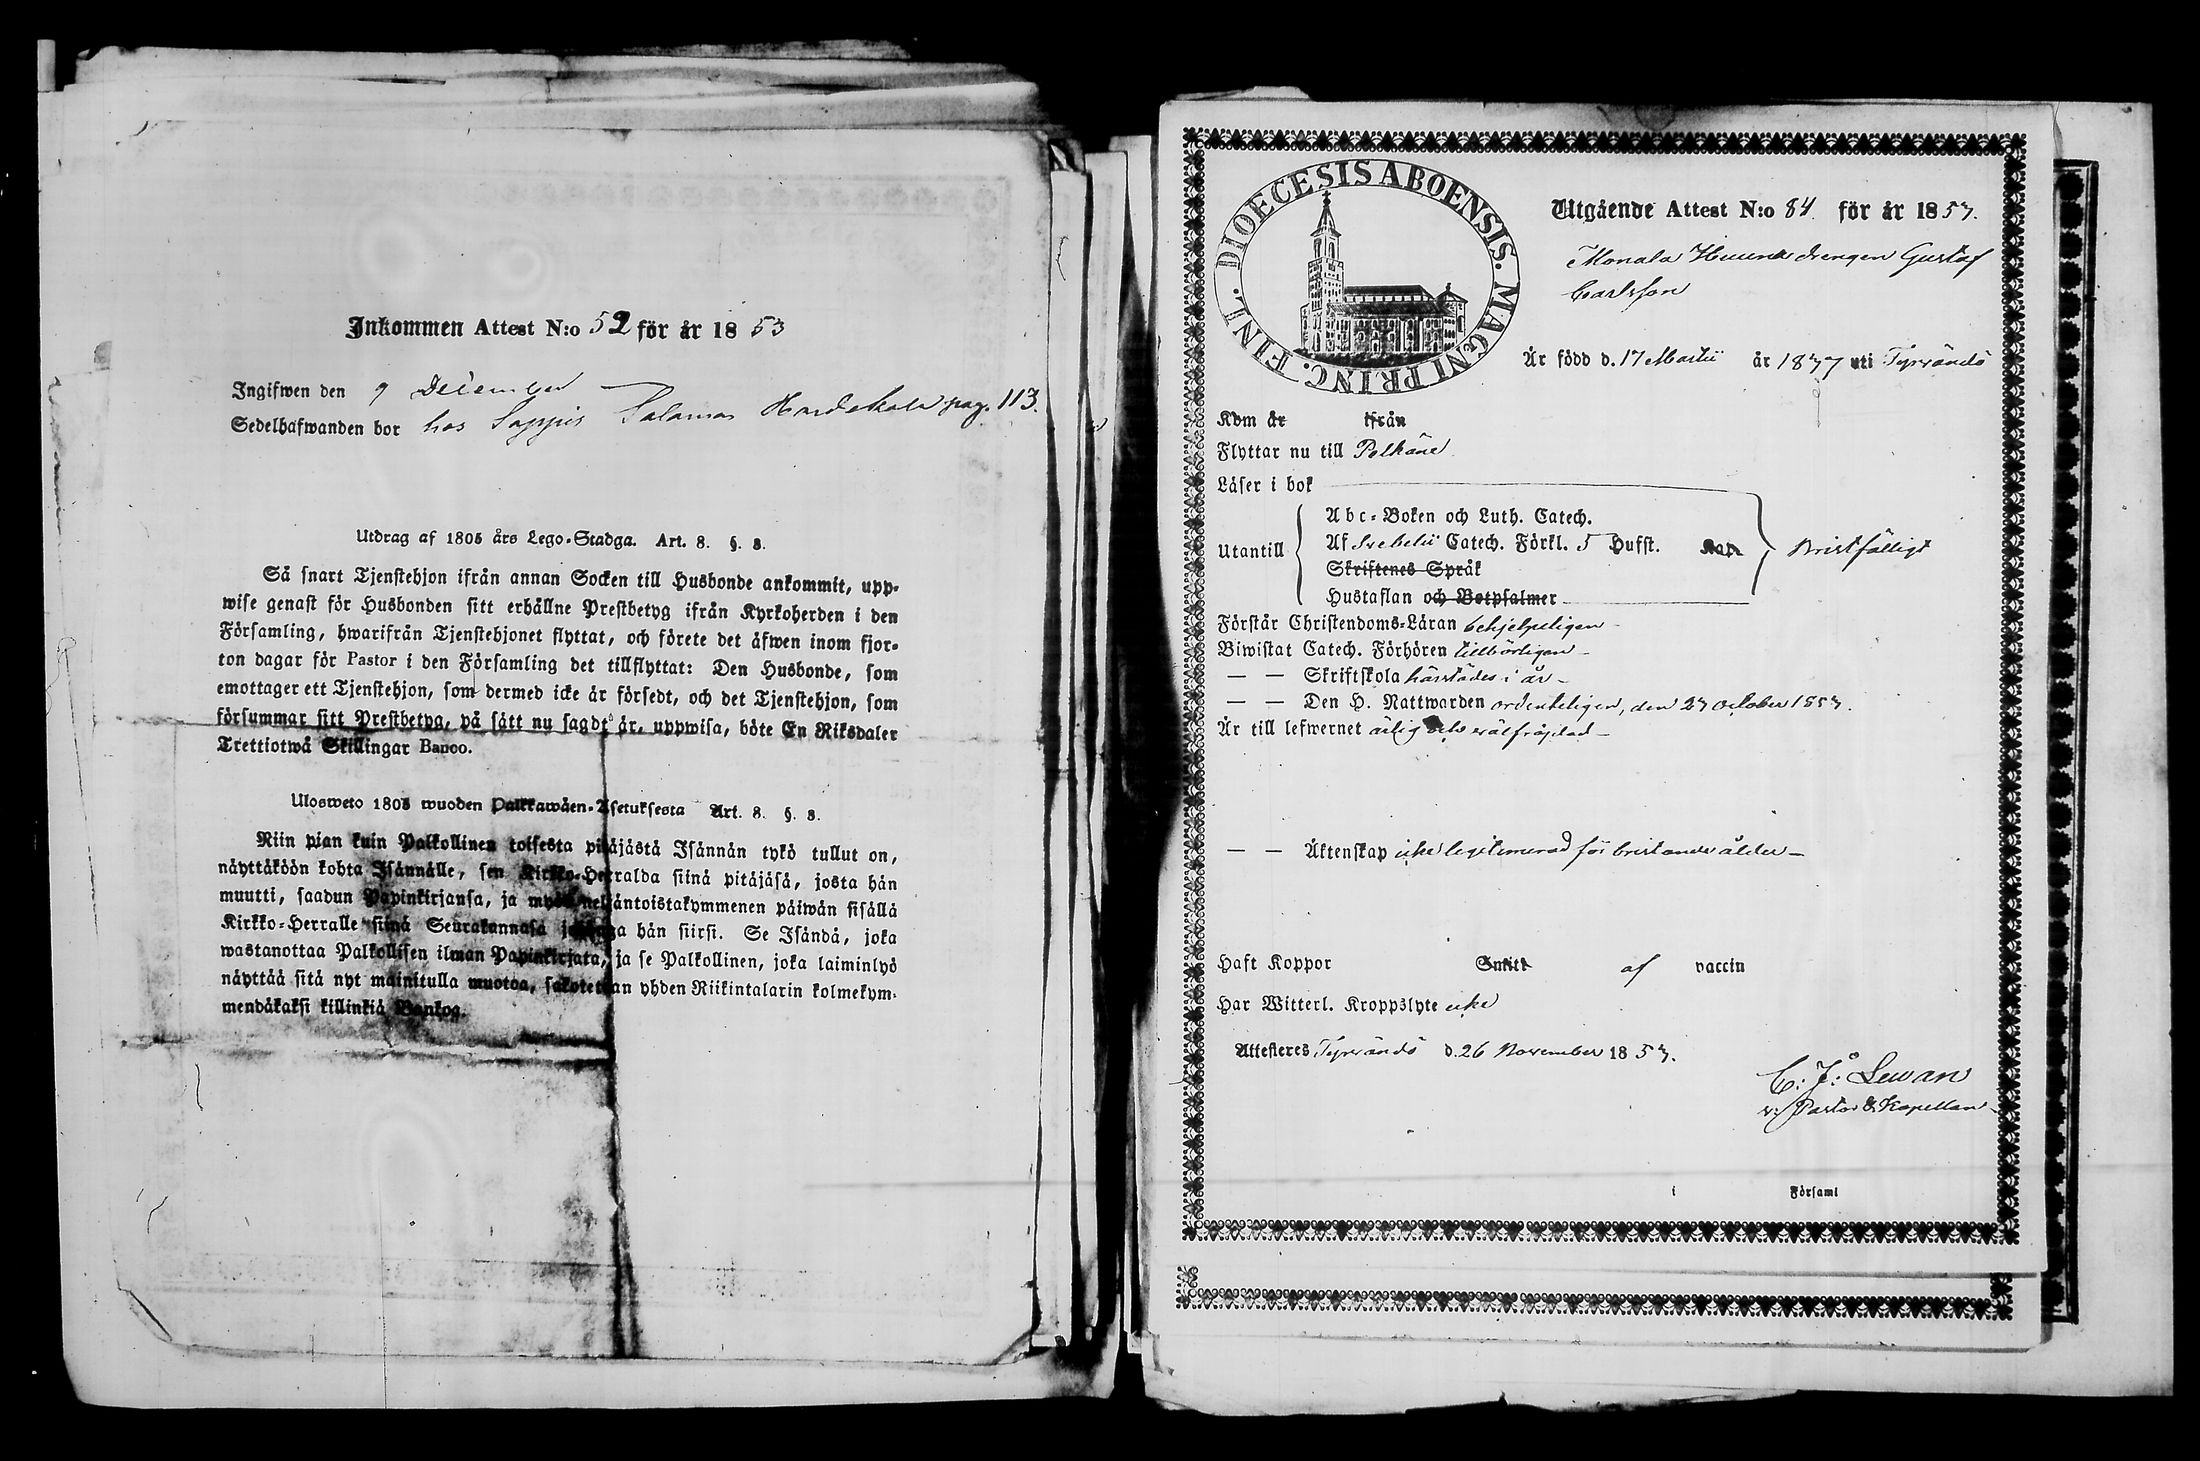 Inkommen Attest N:o 52 för år 1853
Ingifwen den 9 December
Sedelhafwanden bor hos Sappis Salomon Hardokala pag. 113.
Utdrag af 1805 års Lego-Stadga. Art. 8. §. 8.
Så snart Tjenstehjon ifrån annan Socken till Husbonde ankommit, upp-
wise genast för Husbonden sitt erhållne Prestbetyg ifrån Kyrkoherden i den
Församling, hwarifrån Tjenstehjonet flyttat, och förete det äfwen inom fjor-
ton dagar för Pastor i den Församling det tillflyttat: Den Husbonde, som
emottager ett Tjenstehjon, som dermed icke är försedt, och det Tjenstehjon, som
försummar sitt Prestbetyg, på sätt nu sagdt är, uppwisa, böte En Riksdaler
Trettiotwå Skillingar Banco.
Ulosweto 1805 wuoden Palkkawäen-Asetuksesta Art. 8. §. 8.
Niin pian kuin Palkollinen toisesta pitäjästä Isännän tykö tullut on,
näyttäköön kohta Isännälle, sen Kirkko-Herralda siinä pitäjäsä, josta hän
muutti, saadun Papinkirjansa, ja myös neljäntoistakymmenen päiwän sisällä
Kirkko-Herralle siinä Seurakunnasa johonga hän siirsi. Se Isändä, joka
wastanottaa Palkollisen ilman Papinkirjata, ja se Palkollinen, joka laiminlyö
näyttää sitä nyt mainitulla muotoa, sakotetaan yhden Riikintalarin kolmekym-
mendäkaksi killinkiä Bankog.
DIOECESIS ABOENSIS. MAGNI PRINC. FINL.
Utgående Attest N:o 84 för år 1853.
Monala Huuna drengen Gustaf
Carlsson
Är född d. 17 Martii år 1837 uti Tyrvändö
Kom år ifrån
Flyttar nu till Pelkäne
Läser i bok
Abc-Boken och Luth. Catech.
Utantill Af Svebelii Catech. Förkl. 5 Hufst. Bristfälligt
Skriftenes Språk
Hustaflan och Botpsalmer
Förstår Christendoms-Läran behjelpeligen
Biwistat Catech. Förhören tillbörligen
— — Skriftskola härstädes i år
— — Den H. Nattwarden ordenteligen, den 23 October 1853.
Är till lefwernet ärlig och välfräjdad
— — Äktenskap icke legitimerad för bristande ålder
Haft Koppor Smitt af vaccin
Har Witterl. Kroppslyte icke
Attesteres Tyrvändö d. 26 November 1853.
C: J: Lewan
v: Pastor & Kapellan
i Församl